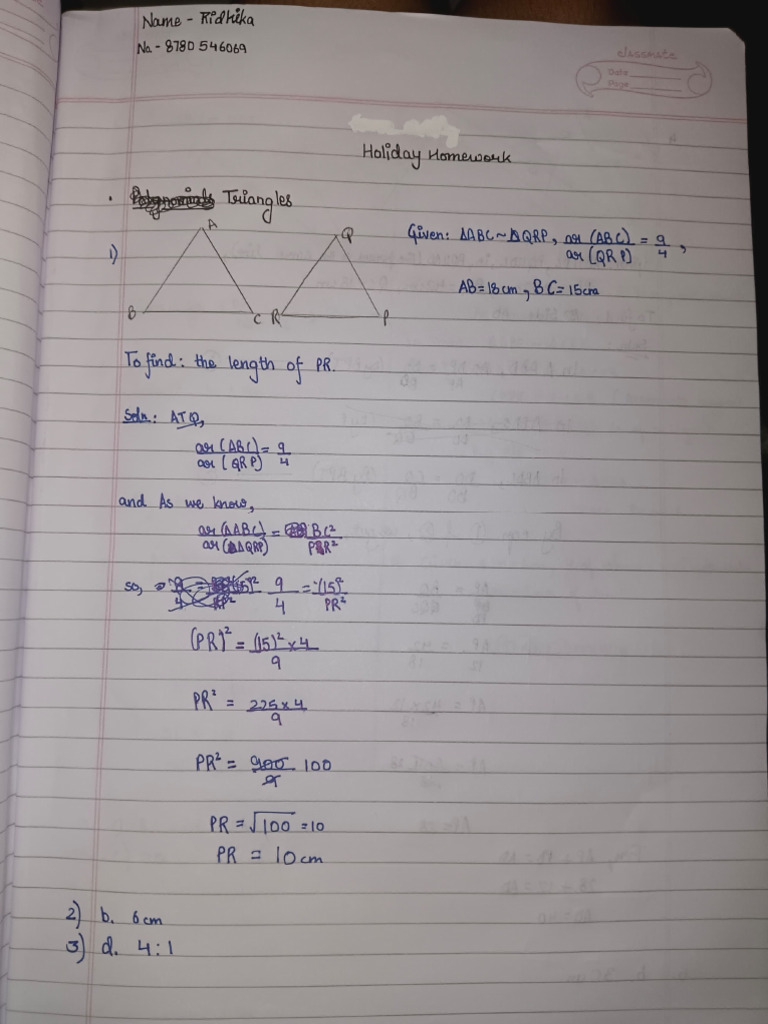 Name - Ridhika
No - 8780 546069
classmate
Date
Page
Holiday Homework
. Triangles
1)
A
B
C
Q
R
P
Given: ΔABC ~ ΔQRP, ar (ABC)/ar (QRP) = 9/4,
AB = 18cm, BC = 15cm
To find: the length of PR.
Soln: ATQ,
ar (ABC)/ar (QRP) = 9/4
and As we know,
ar (ΔABC)/ar (ΔQRP) = BC²/PR²
so, 9/4 = (15)²/PR²
(PR)² = (15)² x 4/9
PR² = 225 x 4/9
PR² = 900/9 100
PR = √100 = 10
PR = 10cm
2) b. 6cm
3) d. 4:1